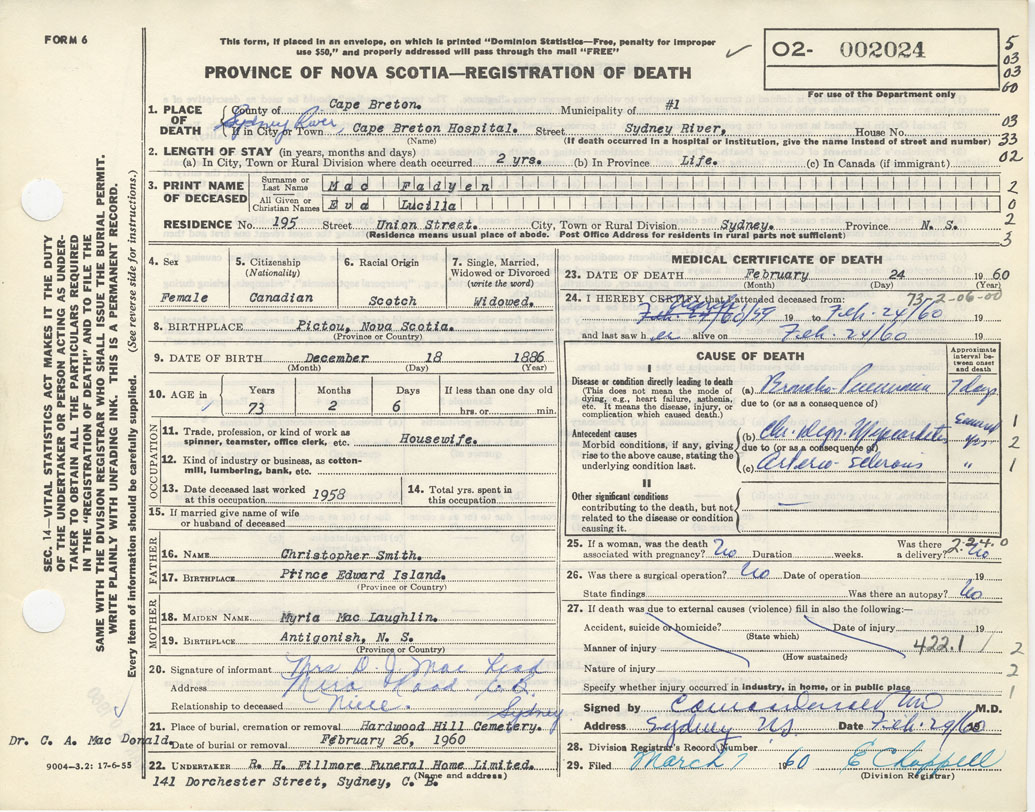 FORM 6
This form, if placed in an envelope, on which is printed "Dominion Statistics—Free, penalty for improper
use $50," and properly addressed will pass through the mail "FREE"
PROVINCE OF NOVA SCOTIA—REGISTRATION OF DEATH
02- 002024
For use of the Department only
5
03
03
60
03
33
02
2
0
2
3
1. PLACE OF DEATH
County of Cape Breton. Municipality of #1
Sydney River
If in City or Town Cape Breton Hospital. Street Sydney River, House No.
(Name) (If death occurred in a hospital or institution, give the name instead of street and number)
2. LENGTH OF STAY (in years, months and days)
(a) In City, Town or Rural Division where death occurred 2 yrs. (b) In Province Life. (c) In Canada (if immigrant)
3. PRINT NAME OF DECEASED
Surname or Last Name Mac Fadyen
All Given or Christian Names Eva Lucilla
RESIDENCE No. 195 Street Union Street. City, Town or Rural Division Sydney. Province N. S.
(Residence means usual place of abode. Post Office Address for residents in rural parts not sufficient)
4. Sex
Female
5. Citizenship
(Nationality)
Canadian
6. Racial Origin
Scotch
7. Single, Married,
Widowed or Divorced
(write the word)
Widowed.
8. BIRTHPLACE Pictou, Nova Scotia.
(Province or Country)
9. DATE OF BIRTH December 18 1886
(Month) (Day) (Year)
10. AGE in
Years Months Days If less than one day old
73 2 6 hrs. or min.
OCCUPATION
11. Trade, profession, or kind of work as
spinner, teamster, office clerk, etc. Housewife.
12. Kind of industry or business, as cotton-
mill, lumbering, bank, etc.
13. Date deceased last worked
at this occupation 1958
14. Total yrs. spent in
this occupation
15. If married give name of wife
or husband of deceased
FATHER
16. NAME Christopher Smith.
17. BIRTHPLACE Prince Edward Island.
(Province or Country)
MOTHER
18. MAIDEN NAME Myria Mac Laughlin.
19. BIRTHPLACE Antigonish, N. S.
(Province or Country)
20. Signature of informant Mrs D. J. Mac
Address Mira Road C.B.
Relationship to deceased Niece. Sydney
21. Place of burial, cremation or removal Hardwood Hill Cemetery.
Date of burial or removal February 26, 1960
Dr. C. A. Mac Donald.
22. UNDERTAKER R. H. Fillmore Funeral Home Limited.
(Name and address)
141 Dorchester Street, Sydney, C. B.
9004—3.2: 17-6-55
MEDICAL CERTIFICATE OF DEATH
23. DATE OF DEATH February 24 1960
(Month) (Day) (Year)
73-2-06-00
24. I HEREBY CERTIFY that I attended deceased from:
19 to Feb. 24/60 19
and last saw her alive on Feb. 24/60 19
CAUSE OF DEATH
Approximate interval between onset and death
I
Disease or condition directly leading to death
(This does not mean the mode of
dying, e.g., heart failure, asthenia,
etc. It means the disease, injury, or
complication which caused death.)
(a) Broncho-Pneumonia 7 days
due to (or as a consequence of)
Antecedent causes
Morbid conditions, if any, giving
rise to the above cause, stating the
underlying condition last.
(b) Chr. Degn. Myocarditis Several yrs.
due to (or as a consequence of)
(c) Arterio-sclerosis "
1
2
1
II
Other significant conditions
contributing to the death, but not
related to the disease or condition
causing it.
25. If a woman, was the death
associated with pregnancy? No Duration weeks. Was there a delivery? No
2-24-0
26. Was there a surgical operation? No Date of operation 19
State findings Was there an autopsy? No
27. If death was due to external causes (violence) fill in also the following:
Accident, suicide or homicide? Date of injury 19
(State which)
Manner of injury 422.1
(How sustained)
Nature of injury
2
2
1
Specify whether injury occurred in industry, in home, or in public place
Signed by M.D.
Address Sydney NS. Date Feb. 29/60
28. Division Registrar's Record Number
29. Filed March 7 1960 E Chappell
(Division Registrar)
SEC. 14—VITAL STATISTICS ACT MAKES IT THE DUTY
OF THE UNDERTAKER OR PERSON ACTING AS UNDER-
TAKER TO OBTAIN ALL THE PARTICULARS REQUIRED
IN THE "REGISTRATION OF DEATH" AND TO FILE THE
SAME WITH THE DIVISION REGISTRAR WHO SHALL ISSUE THE BURIAL PERMIT.
WRITE PLAINLY WITH UNFADING INK. THIS IS A PERMANENT RECORD.
Every item of information should be carefully supplied. (See reverse side for instructions.)